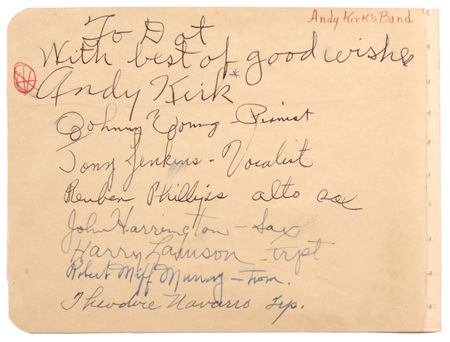 Andy Kirk's Band
To Dot
With best of good wishes
Andy Kirk
Johnny Young - Pianist
Tony Jenkins - Vocalist
Reuben Phillips alto sax
John Harrington - Sax
Harry Lawson - trpt
Robert Murray - Trom.
Theodore Navarro Trp.